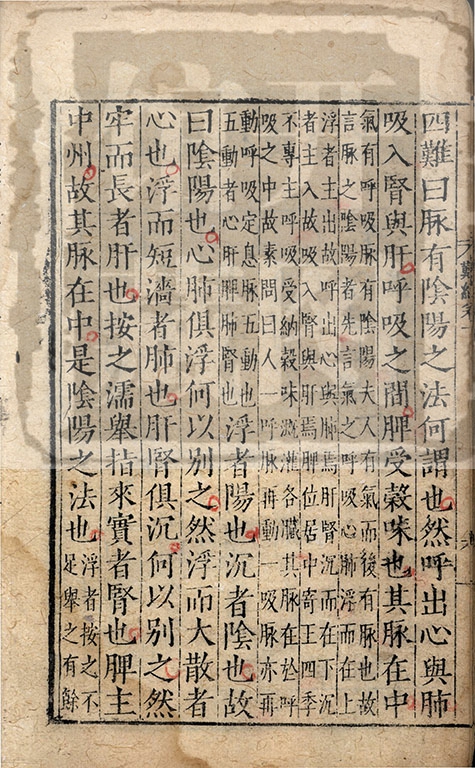 四難曰脉有陰陽之法何謂也然呼出心與肺
吸入腎與肝呼吸之間脾受穀味也其脉在中
氣有呼吸脉有陰陽夫人有氣而後有脉也故
言脉之陰陽者先言氣之呼吸心肺浮而在上
浮者主出故呼出心與肺焉肝腎沉而在下沉
者主入故吸入腎與肝焉脾位居中寄王四季
不專主呼吸受納穀味溉灌各臟其脉在於呼
吸之中故素問曰人一呼脉再動一吸脉亦再
動呼吸定息脉五動也
五動者心肝脾肺腎也
浮者陽也沉者陰也故
曰陰陽也心肺俱浮何以別之然浮而大散者
心也浮而短濇者肺也肝腎俱沉何以別之然
牢而長者肝也按之濡舉指來實者腎也脾主
中州故其脉在中是陰陽之法也
浮者按之不
足舉之有餘